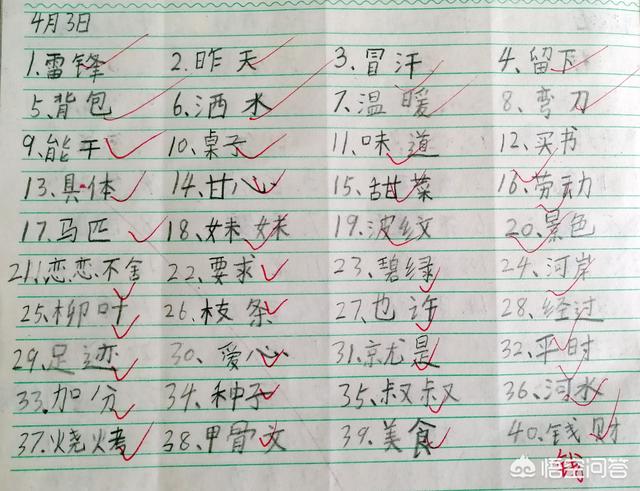 4月3日
1.雷锋 2.昨天 3.冒汗 4.留下
5.背包 6.洒水 7.温暖 8.弯刀
9.能干 10.桌子 11.味道 12.买书
13.具体 14.甘心 15.甜菜 16.劳动
17.马匹 18.妹妹 19.波纹 20.景色
21.恋恋不舍 22.要求 23.碧绿 24.河岸
25.柳叶 26.枝条 27.也许 28.经过
29.足迹 30.爱心 31.就是 32.平时
33.加分 34.种子 35.叔叔 36.河水
37.烧烤 38.甲骨文 39.美食 40.钱财
钱
悟空问答